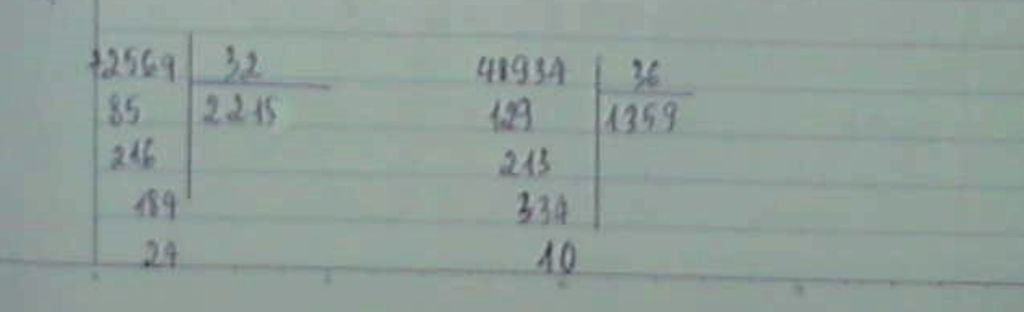 72569 32 48934 36
85 2215 129 1359
216 213
189 334
29 10